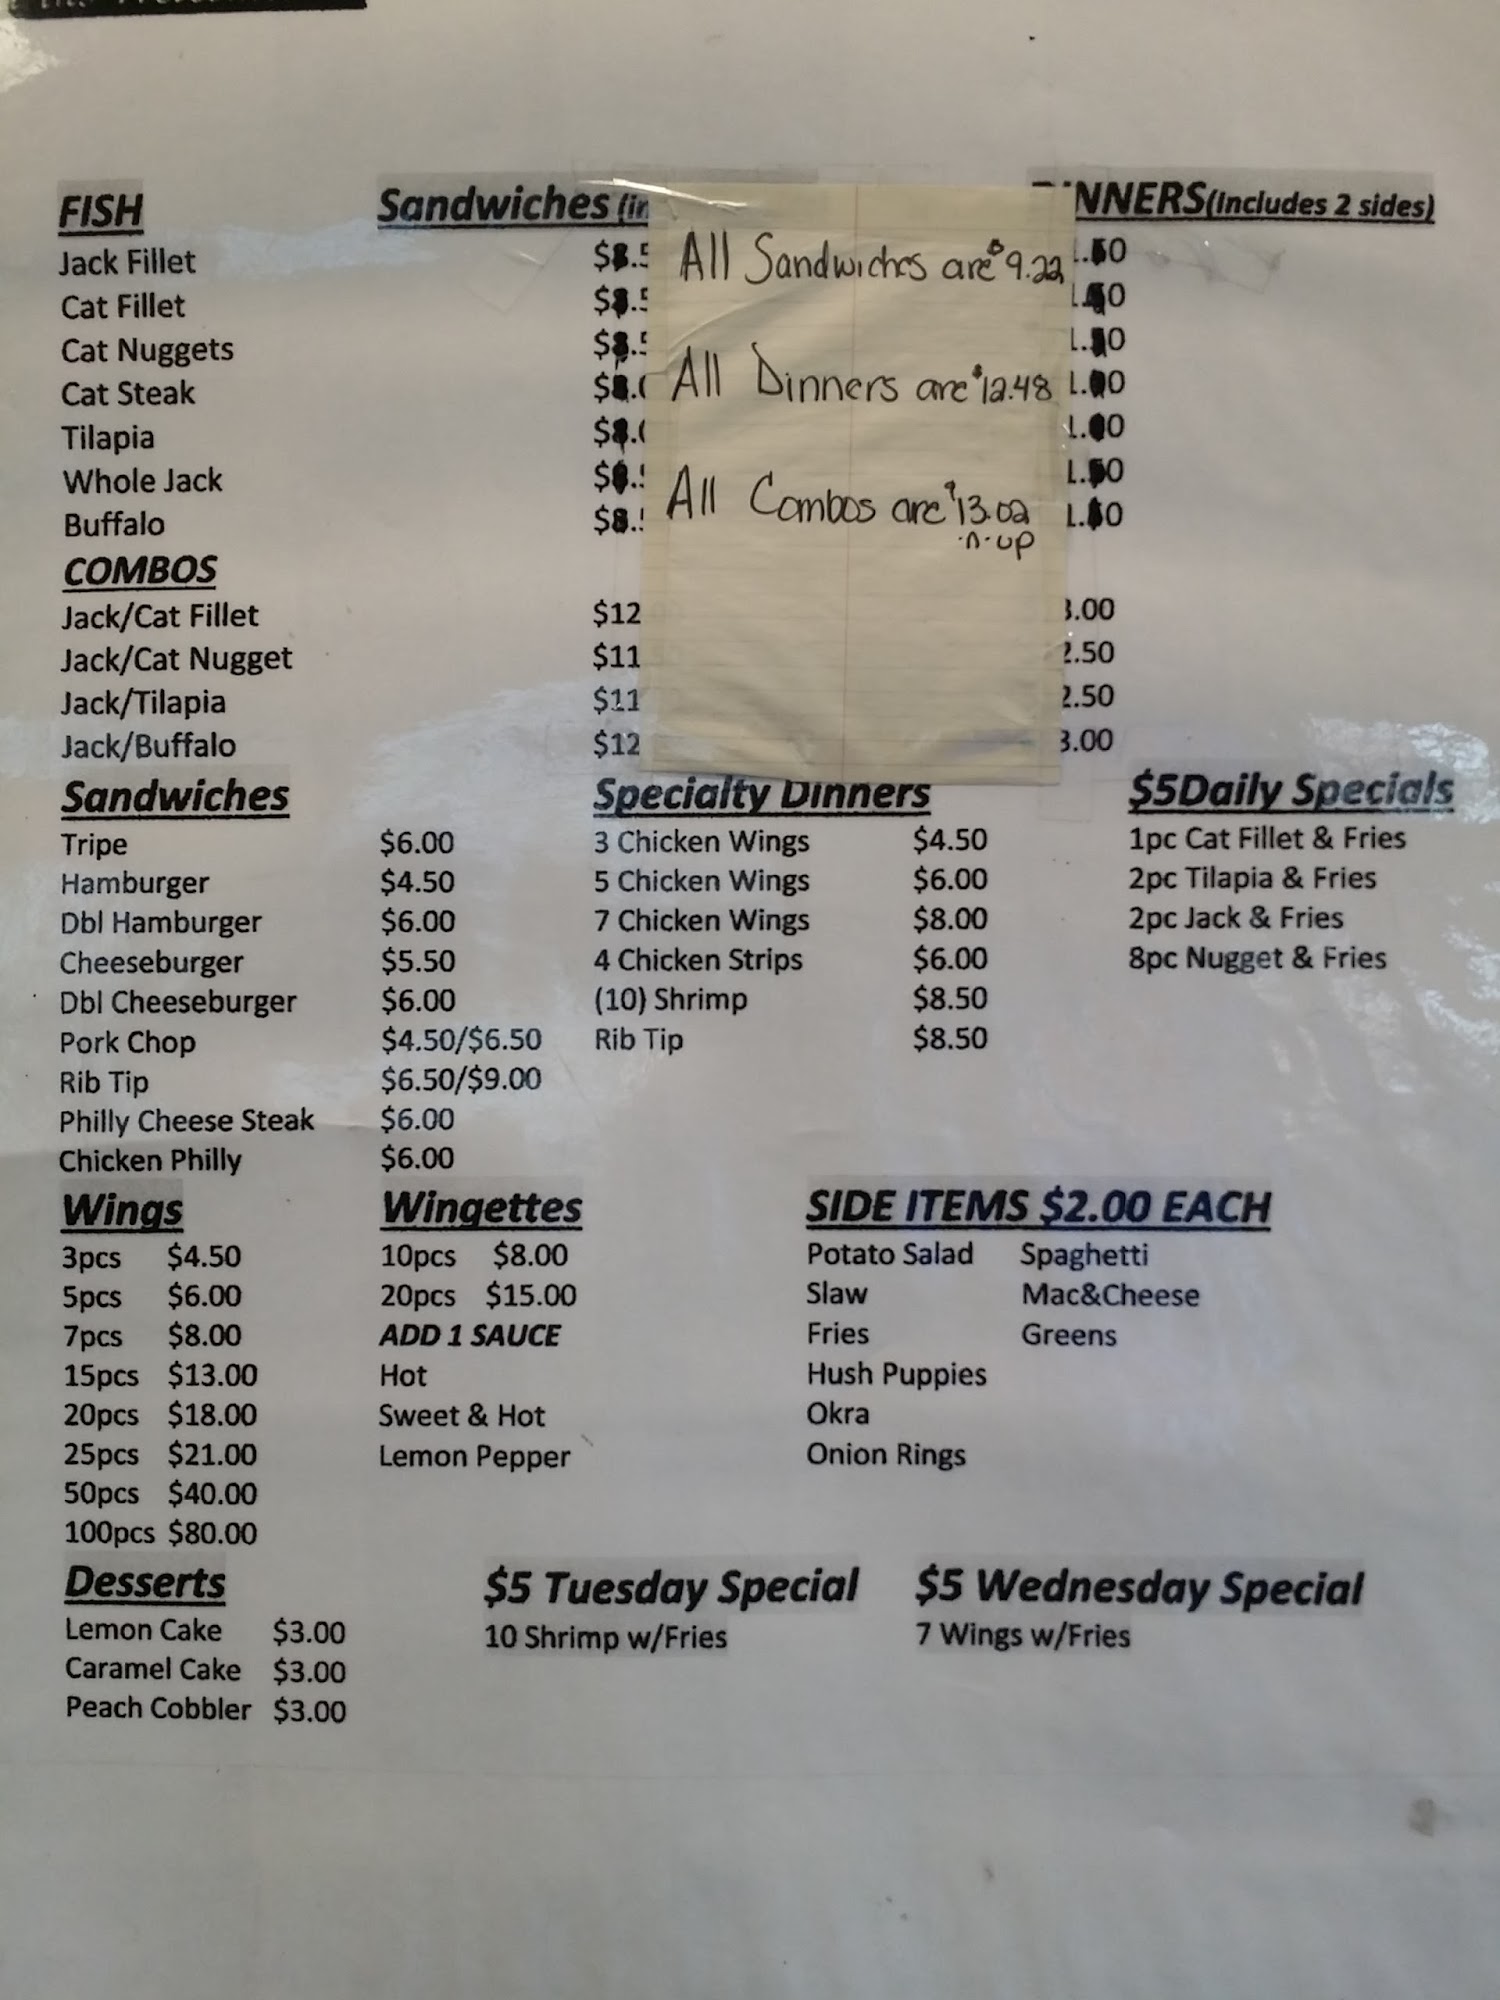 FISH Sandwiches DINNERS(Includes 2 sides)
All Sandwiches are $9.22
All Dinners are $12.48
All Combos are $13.02
n-up
Jack Fillet
Cat Fillet
Cat Nuggets
Cat Steak
Tilapia
Whole Jack
Buffalo
COMBOS
Jack/Cat Fillet $12 3.00
Jack/Cat Nugget $11 2.50
Jack/Tilapia $11 2.50
Jack/Buffalo $12 3.00
Sandwiches
Tripe $6.00
Hamburger $4.50
Dbl Hamburger $6.00
Cheeseburger $5.50
Dbl Cheeseburger $6.00
Pork Chop $4.50/$6.50
Rib Tip $6.50/$9.00
Philly Cheese Steak $6.00
Chicken Philly $6.00
Specialty Dinners
3 Chicken Wings $4.50
5 Chicken Wings $6.00
7 Chicken Wings $8.00
4 Chicken Strips $6.00
(10) Shrimp $8.50
Rib Tip $8.50
$5Daily Specials
1pc Cat Fillet & Fries
2pc Tilapia & Fries
2pc Jack & Fries
8pc Nugget & Fries
Wings
3pcs $4.50
5pcs $6.00
7pcs $8.00
15pcs $13.00
20pcs $18.00
25pcs $21.00
50pcs $40.00
100pcs $80.00
Wingettes
10pcs $8.00
20pcs $15.00
ADD 1 SAUCE
Hot
Sweet & Hot
Lemon Pepper
SIDE ITEMS $2.00 EACH
Potato Salad Spaghetti
Slaw Mac&Cheese
Fries Greens
Hush Puppies
Okra
Onion Rings
Desserts
Lemon Cake $3.00
Caramel Cake $3.00
Peach Cobbler $3.00
$5 Tuesday Special
10 Shrimp w/Fries
$5 Wednesday Special
7 Wings w/Fries